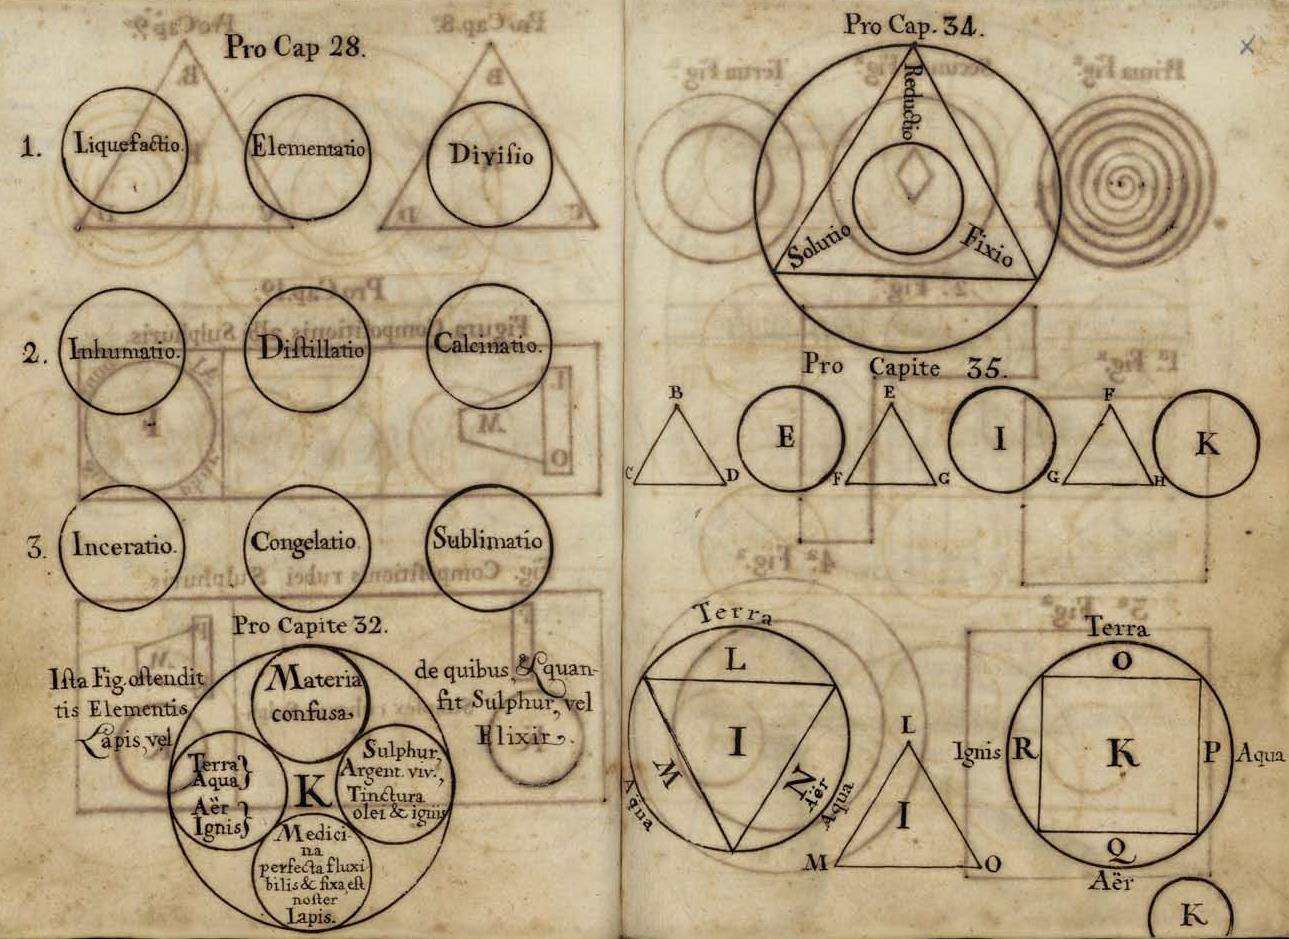 Pro Cap 28.
1. Liquefactio. Elementatio Divisio
2. Inhumatio. Distillatio Calcinatio.
3. Inceratio. Congelatio Sublimatio
Pro Capite 32.
Ista Fig. ostendit de quibus, & quan-
tis Elementis fit Sulphur, vel
Lapis, vel Elixir.
Materia
confusa
Terra
Aqua
Aër
Ignis
K
Sulphur,
Argent. viv.,
Tinctura
olei & ignis
Medici-
na
perfecta fluxi-
bilis & fixa, est
noster
Lapis.
Pro Cap. 34.
Reductio
Solutio Fixio
Pro Capite 35.
B E F
E I K
C D F G G H
Terra
L
I
M N
Aqua Aër Aqua
L
I
M O
Terra
O
Ignis R K P Aqua
Q
Aër
K